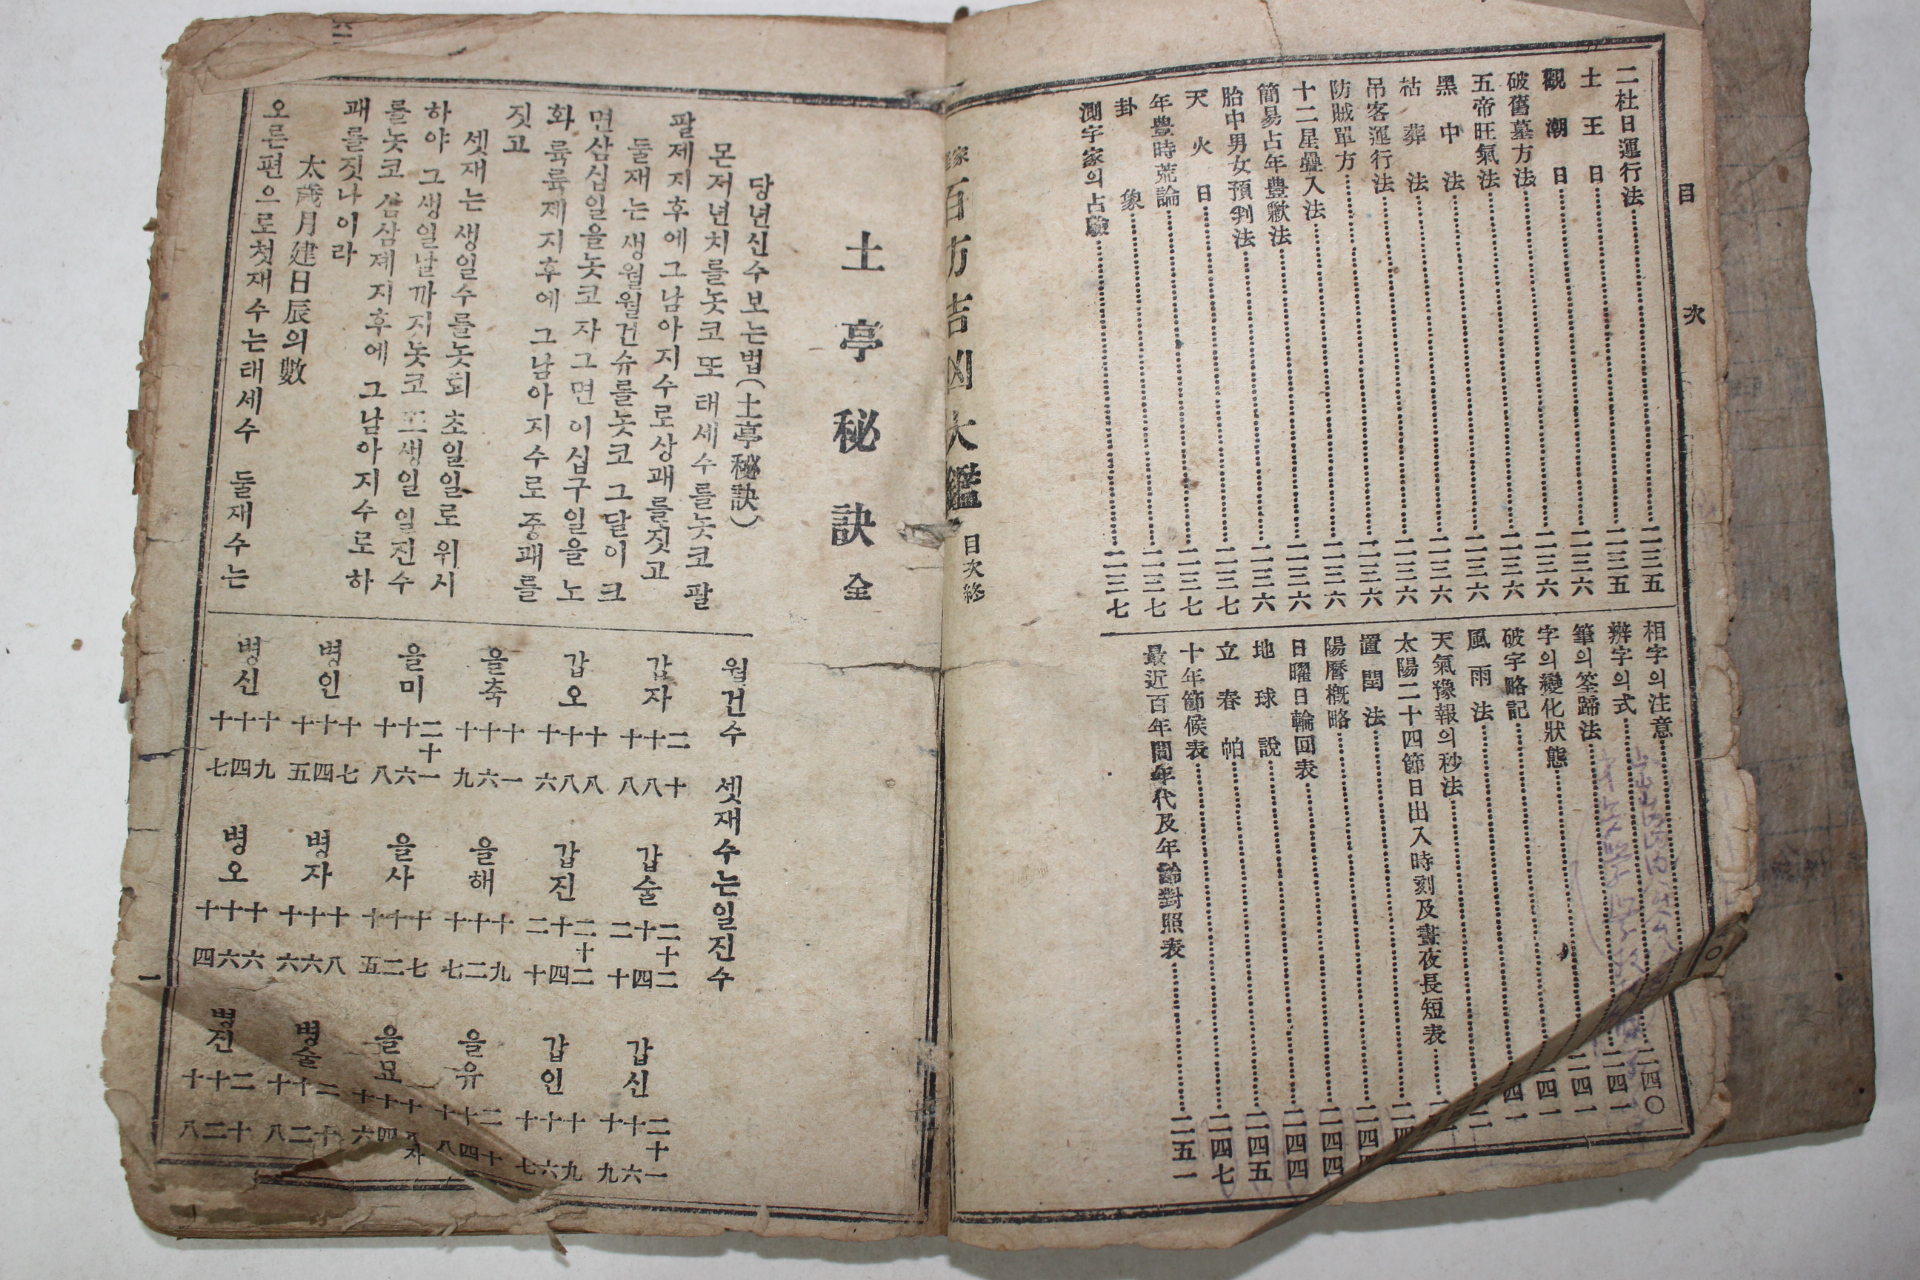 目次
二社日運行法 二三五
土王日 二三五
觀潮日 二三六
破舊墓方法 二三六
五帝旺氣法 二三六
黑中法 二三六
祜葬法 二三六
吊客運行法 二三六
防賊單方 二三六
十二星疊入法 二三六
簡易占年豊歉法 二三六
胎中男女預判法 二三七
天火日 二三七
年豊時荒論 二三七
卦象 二三七
測字家의占驗
相字의注意 二四〇
辨字의式 二四一
筆의筌蹄法 二四一
字의變化狀態 二四一
破字略記 二四一
風雨法
天氣豫報의秒法
太陽二十四節日出入時刻及晝夜長短表
置閏法
陽曆槪略 二四四
日曜日輪回表 二四四
地球說 二四五
立春帖 二四七
十年節候表 二五一
最近百年間年代及年齡對照表
百方吉凶大鑑 目次終
土亭秘訣 全
당년신수보는법(土亭秘訣)
몬저년치를놋코또태세수를놋코팔
팔제지후에그남아지수로상괘를짓고
둘재는생월월건슈를놋코그달이크
면삼십일을놋코자그면이십구일을노
화륙륙제지후에그남아지수로중괘를
짓고
셋재는생일수를놋되초일일로위시
하야그생일날까지놋코또생일일진수
를놋코삼삼제지후에그남아지수로하
괘를짓나이라
太歲月建日辰의數
오른편으로첫재수는태세수 둘재수는
월건수 셋재수는일진수
갑자 二十 十八 十八
갑술 二十二 十四 二十
갑신 二十一 十六 十九
갑오 十八 十八 十六
갑진 二十二 十四 二十
갑인 十九 十六 十七
을축 十一 十六 十九
을해 十九 十二 十七
을유 二十 十四 十八
을미 二十一 十六 十八
을사 十七 十二 十五
을묘
병인 十七 十四 十五
병자 十八 十六 十六
병술
병신 十九 十四 十七
병오 十六 十六 十四
병진 二十 十二 十八
一